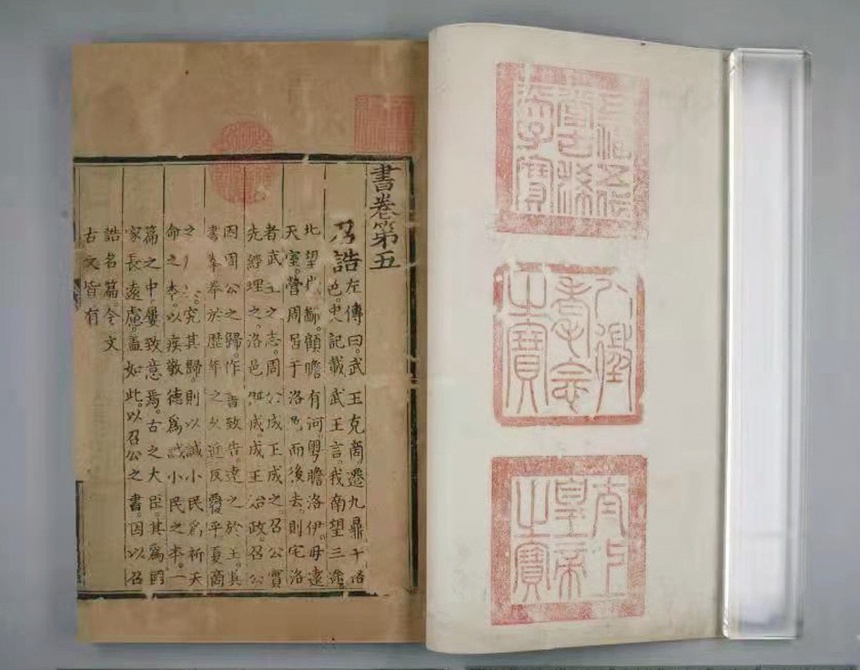 五福五代
堂古稀
天子寶
八徵
耄念
之寶
太上
皇帝
之寶
書卷第五
誥 左傳曰。武王克商。遷九鼎于洛
邑。史記載武王言。我南望三塗。
北望鄙。顧瞻有河。粤瞻洛伊。毋遠
天室。營周居于洛邑而後去。則宅洛
者武王之志。周公成王成之。召公實
先經理之。洛邑既成。成王始政。召公
因周公之歸。作書致告。達之於王。其
書拳拳於歷年之久近。反覆乎夏商
之。究其歸。則以諴小民為祈天
命之本。以疾敬德為諴小民之本。一
篇之中。屢致意焉。古之大臣。其為國
家長遠慮。蓋如此。以召公之書。因以召
誥名篇。今文
古文皆有